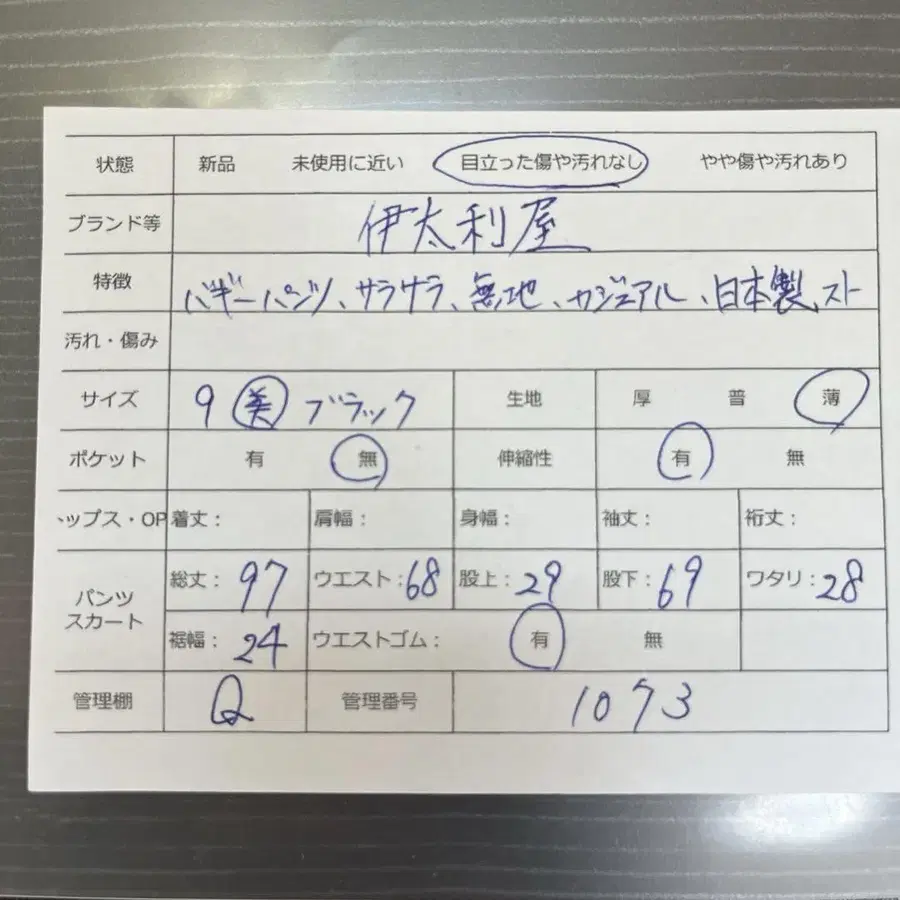 状態 新品 未使用に近い 目立った傷や汚れなし やや傷や汚れあり
ブランド等 伊太利屋
特徴 バギーパンツ、サラサラ、無地、カジュアル、日本製、スト
汚れ・傷み
サイズ 9 ブラック 生地 厚 普 薄
ポケット 有 無 伸縮性 有 無
ップス・OP 着丈: 肩幅: 身幅: 袖丈: 裄丈:
パンツ スカート 総丈: 97 ウエスト: 68 股上: 29 股下: 69 ワタリ: 28
裾幅: 24 ウエストゴム: 有 無
管理棚 Q 管理番号 1073